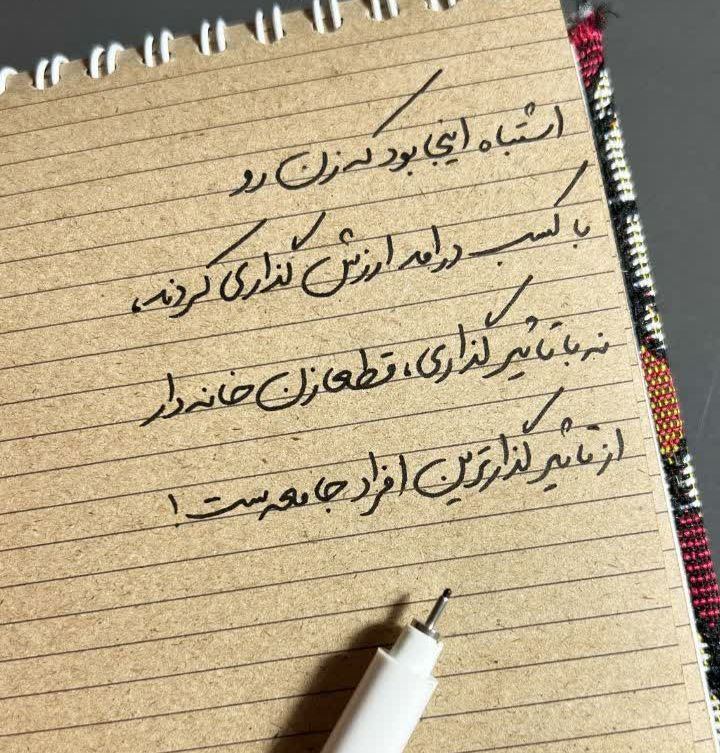 اشتباه اینجا بود که زن رو
با کسب درامد ارزش گذاری کردند،
نه با تاثیر گذاری، قطعا زن خانه دار
از تاثیر گذارترین افراد جامعه ست!